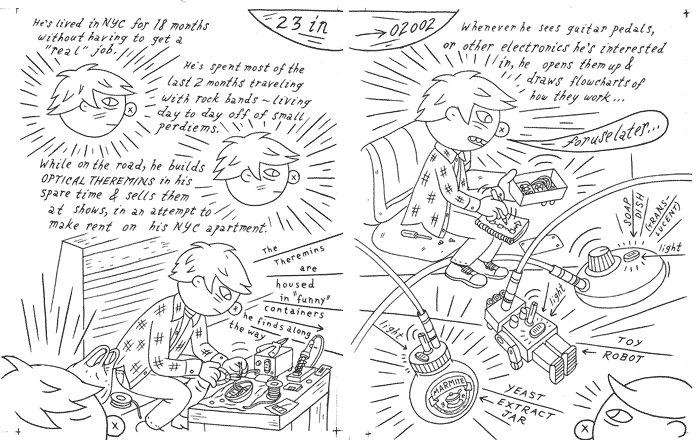 He's lived in NYC for 18 months
without having to get a
"real" job.
He's spent most of the
last 2 months traveling
with rock bands – living
day to day off of small
perdiems.
While on the road, he builds
OPTICAL THEREMINS in his
spare time & sells them
at shows, in an attempt to
make rent on his NYC apartment.
The
Theremins
are
housed
in "funny"
containers
he finds along
the way
23 in
02002
Whenever he sees guitar pedals,
or other electronics he's interested
in, he opens them up &
draws flowcharts of
how they work...
foruselater...
SOAP
DISH
(TRANS-
LUCENT)
light
light
light
TOY
ROBOT
MARMITE
YEAST
EXTRACT
JAR